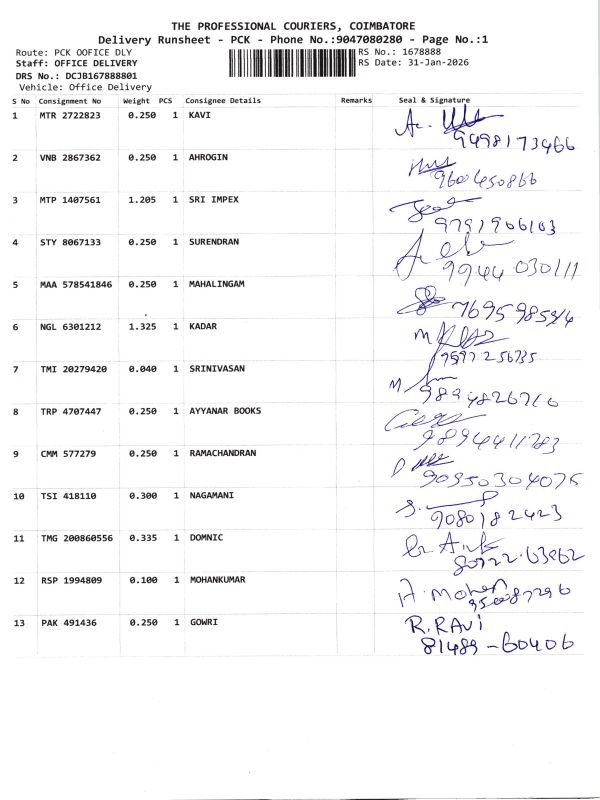 THE PROFESSIONAL COURIERS, COIMBATORE
Delivery Runsheet - PCK - Phone No.:9047080280 - Page No.:1
Route: PCK OOFICE DLY RS No.: 1678888
Staff: OFFICE DELIVERY RS Date: 31-Jan-2026
DRS No.: DCJB167888801
Vehicle: Office Delivery
S No Consignment No Weight PCS Consignee Details Remarks Seal & Signature
1 MTR 2722823 0.250 1 KAVI
9498173466
2 VNB 2867362 0.250 1 AHROGIN
9600450866
3 MTP 1407561 1.205 1 SRI IMPEX
9791906103
4 STY 8067133 0.250 1 SURENDRAN
9944 030111
5 MAA 578541846 0.250 1 MAHALINGAM
6 NGL 6301212 1.325 1 KADAR
7 TMI 20279420 0.040 1 SRINIVASAN
M
9894826710
8 TRP 4707447 0.250 1 AYYANAR BOOKS
9894411783
9 CMM 577279 0.250 1 RAMACHANDRAN
10 TSI 418110 0.300 1 NAGAMANI
S.
9080182423
11 TMG 200860556 0.335 1 DOMNIC
12 RSP 1994809 0.100 1 MOHANKUMAR
A. Mohan
13 PAK 491436 0.250 1 GOWRI
R.RAVI
81489-60406